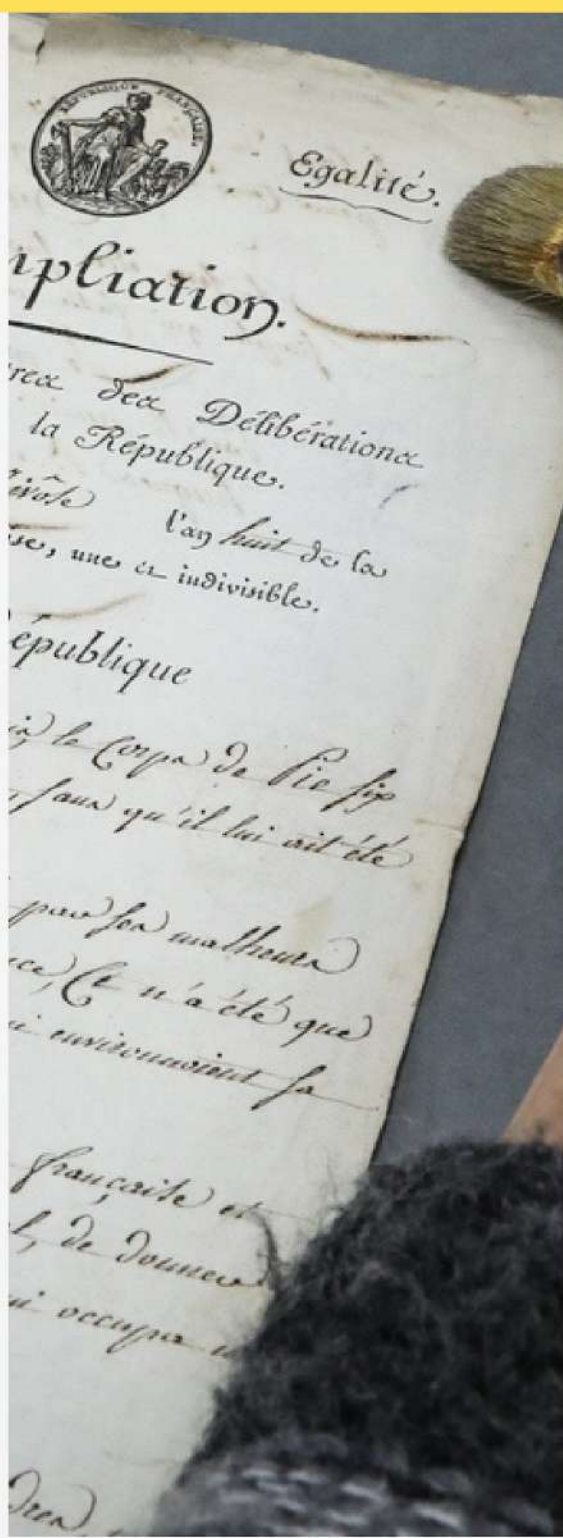 RÉPUBLIQUE FRANÇAISE.
Egalité.
mpliation.
des Délibérations
la République.
l'an huit de la
se, une et indivisible.
république
le Corps de Pie six
sans qu'il lui ait été
par ses malheurs
ce, Et n'a été que
i environnoient sa
française et
de donner
i occupa